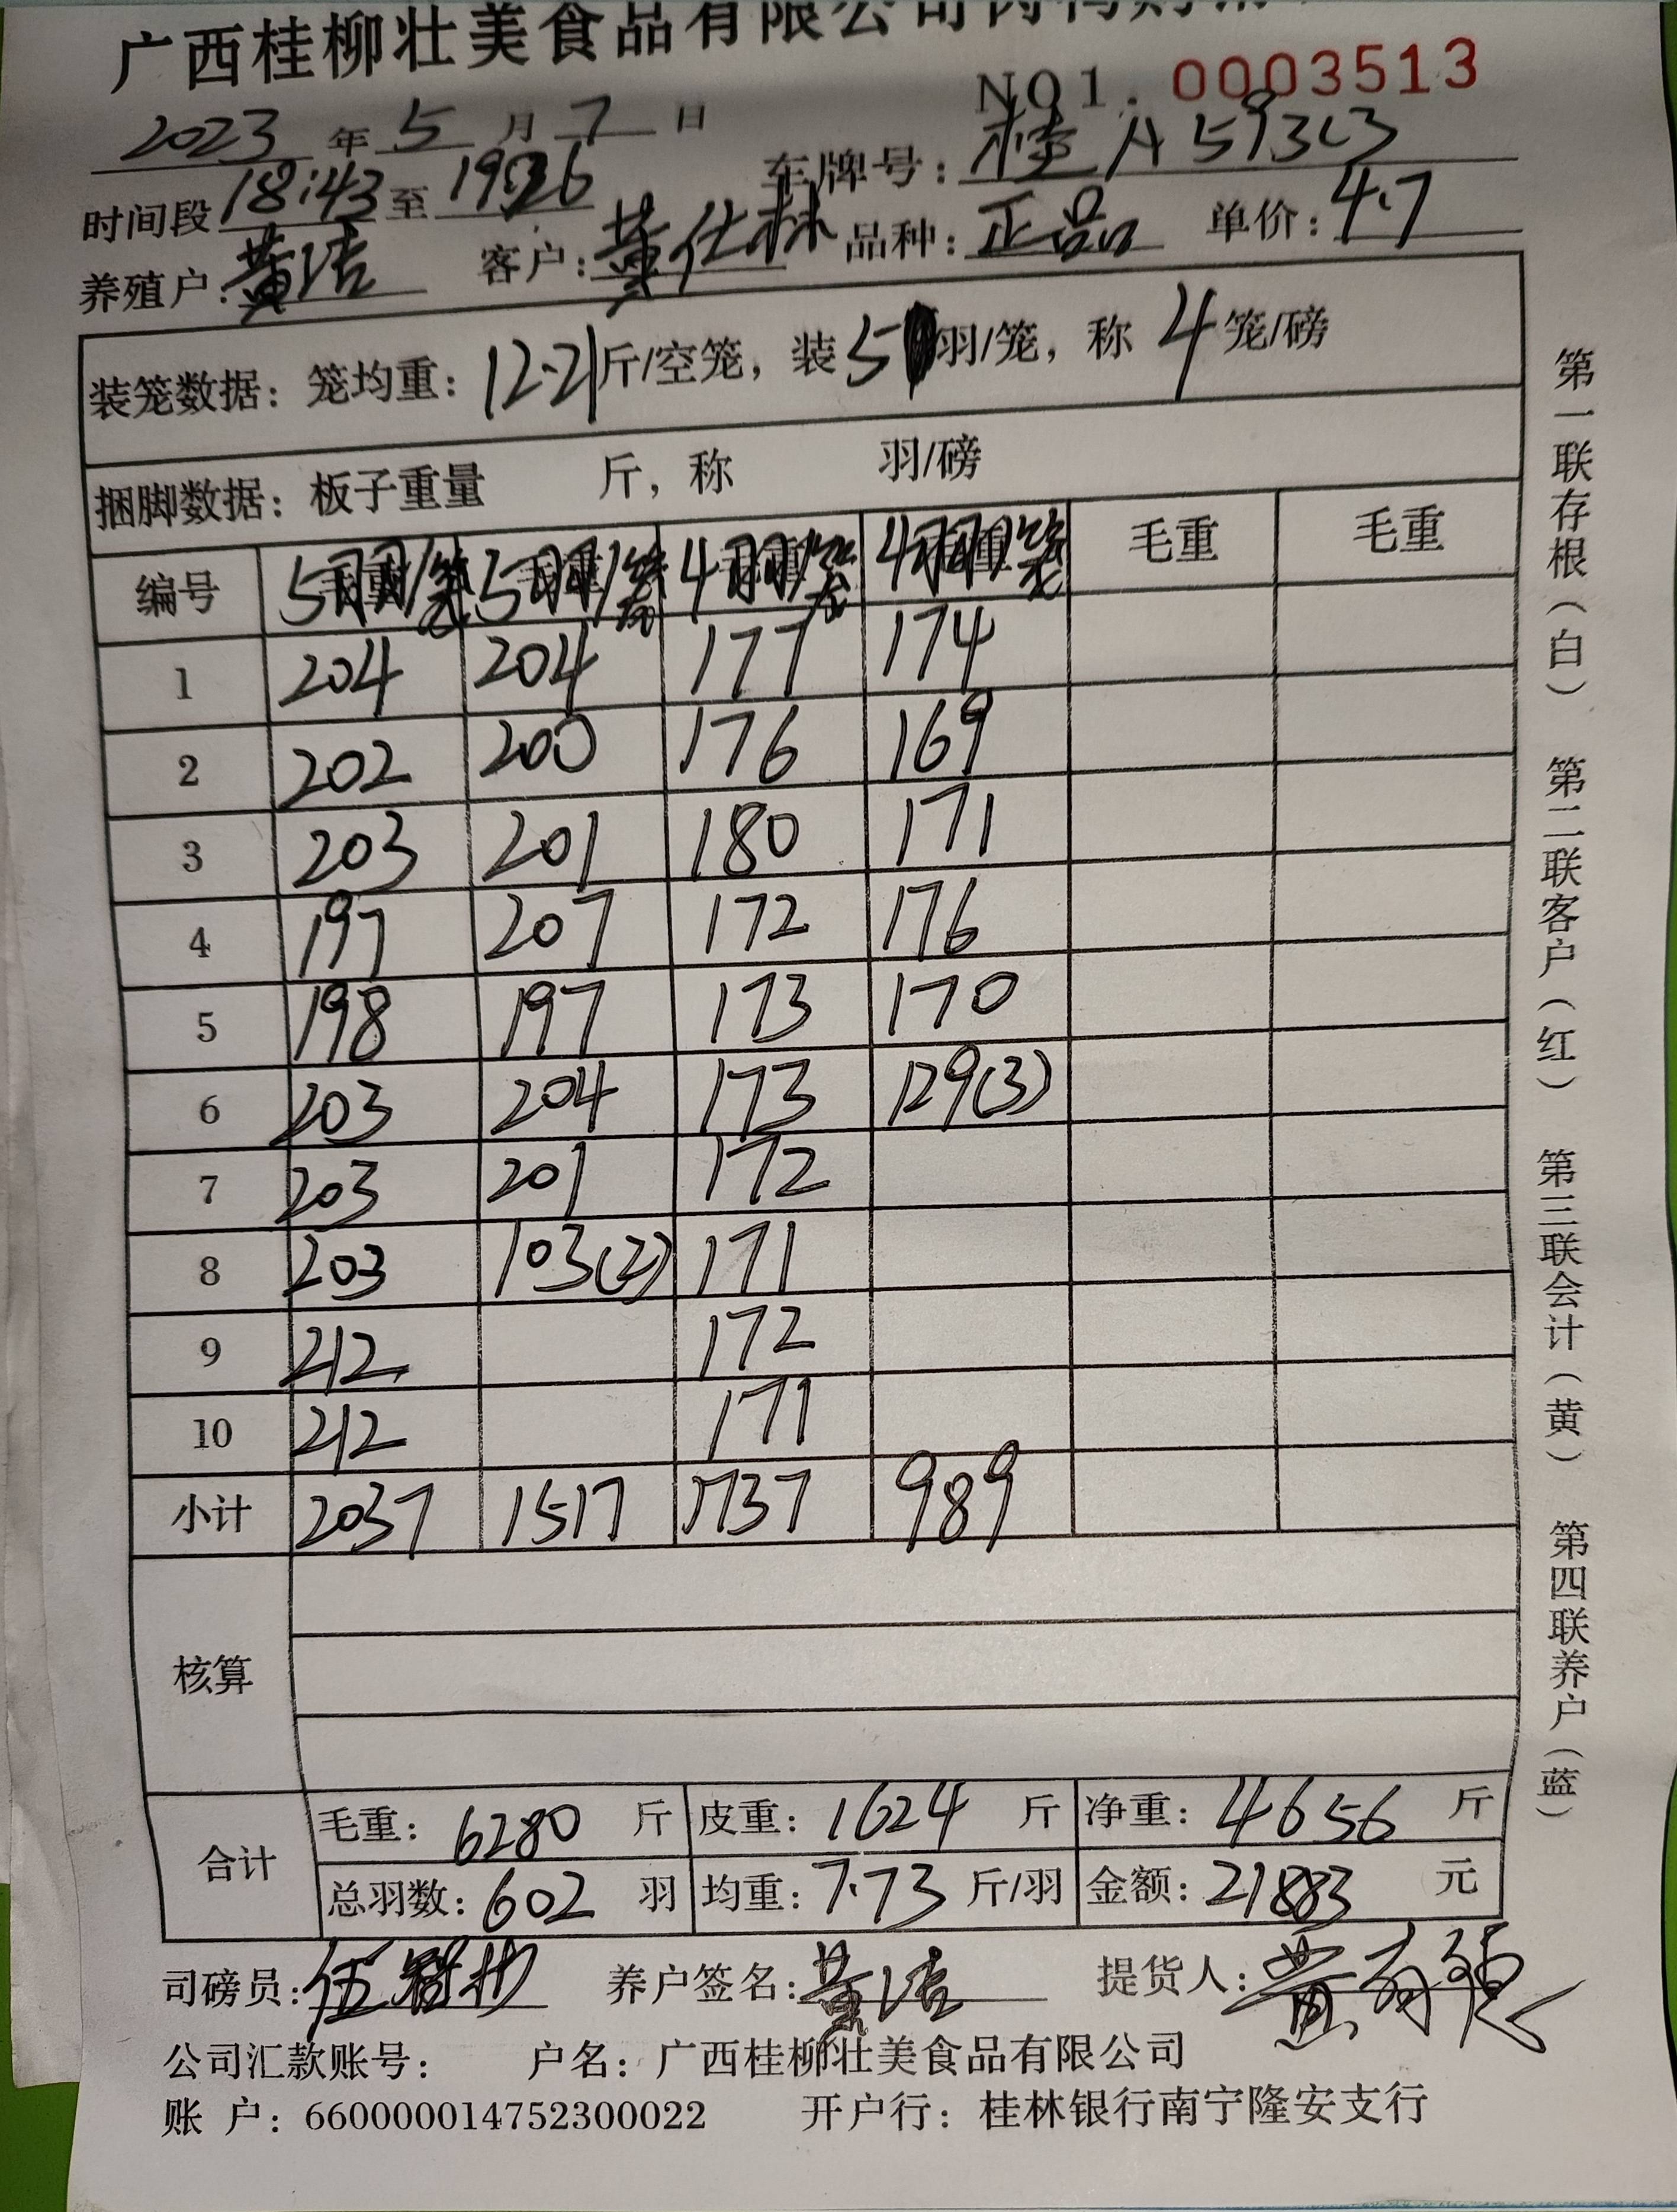 广西桂柳壮美食品有限公司肉鸭购
NO1. 0003513
2023 年 5 月 7 日
时间段 18:43 至 19:26 车牌号: 桂A593C3
养殖户: 黄洁 客户: 黄仕林 品种: 正品 单价: 4.7
装笼数据: 笼均重: 12.21 斤/空笼, 装 5 羽/笼, 称 4 笼/磅
捆脚数据: 板子重量 斤, 称 羽/磅
编号 5羽/笼 5羽/笼 4羽/笼 4羽/笼 毛重 毛重
1 204 204 177 174
2 202 200 176 169
3 203 201 180 171
4 197 207 172 176
5 198 197 173 170
6 203 204 173 129(3)
7 203 201 172
8 203 103(2) 171
9 212 172
10 212 171
小计 2037 1517 1737 989
核算
合计
毛重: 6280 斤 皮重: 1624 斤 净重: 4656 斤
总羽数: 602 羽 均重: 7.73 斤/羽 金额: 21883 元
司磅员: 伍 养户签名: 黄洁 提货人: 黄
公司汇款账号: 户名: 广西桂柳壮美食品有限公司
账 户: 660000014752300022 开户行: 桂林银行南宁隆安支行
第一联存根(白) 第二联客户(红) 第三联会计(黄) 第四联养户(蓝)